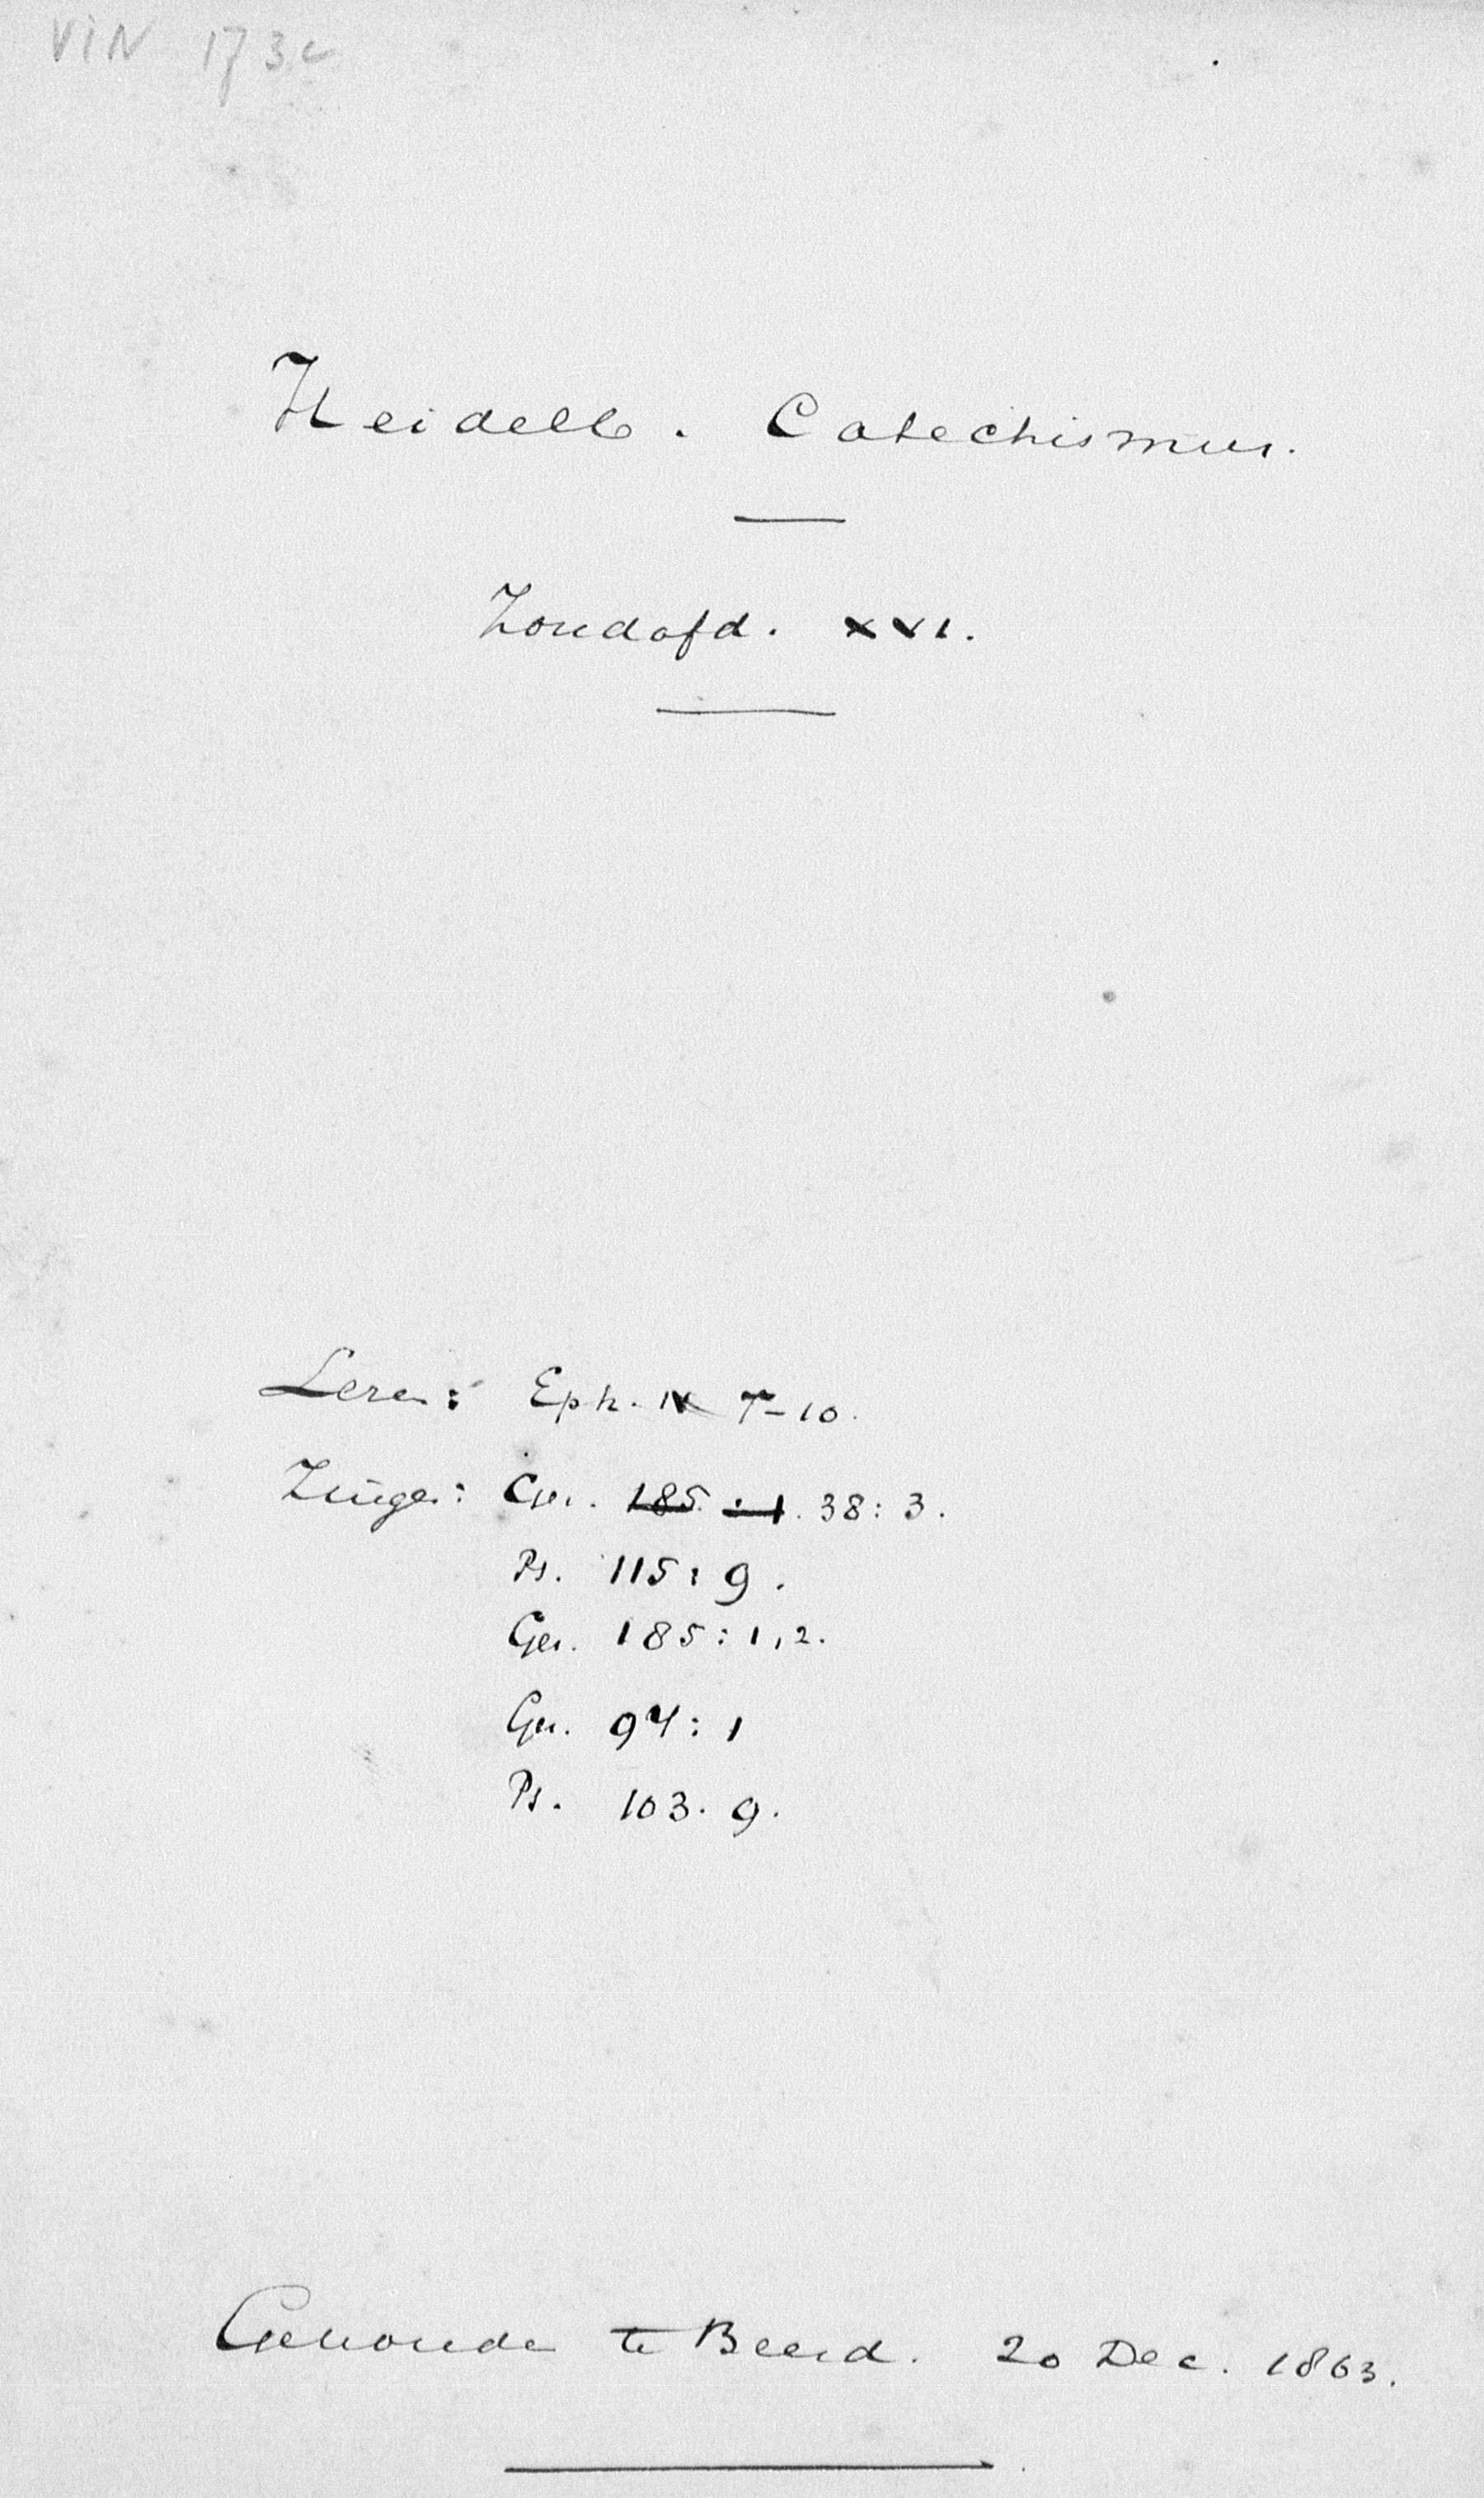 VIN 173c
Heidelb. Catechismus.
Zondafd. XXI.
Lezen: Eph. IV 7-10.
Zingen: Gez. 185:1. 38:3.
Ps. 115:9.
Gez. 185:1,2.
Gez. 94:1
Ps. 103.9.
Gehouden te Beesd. 20 Dec. 1863.